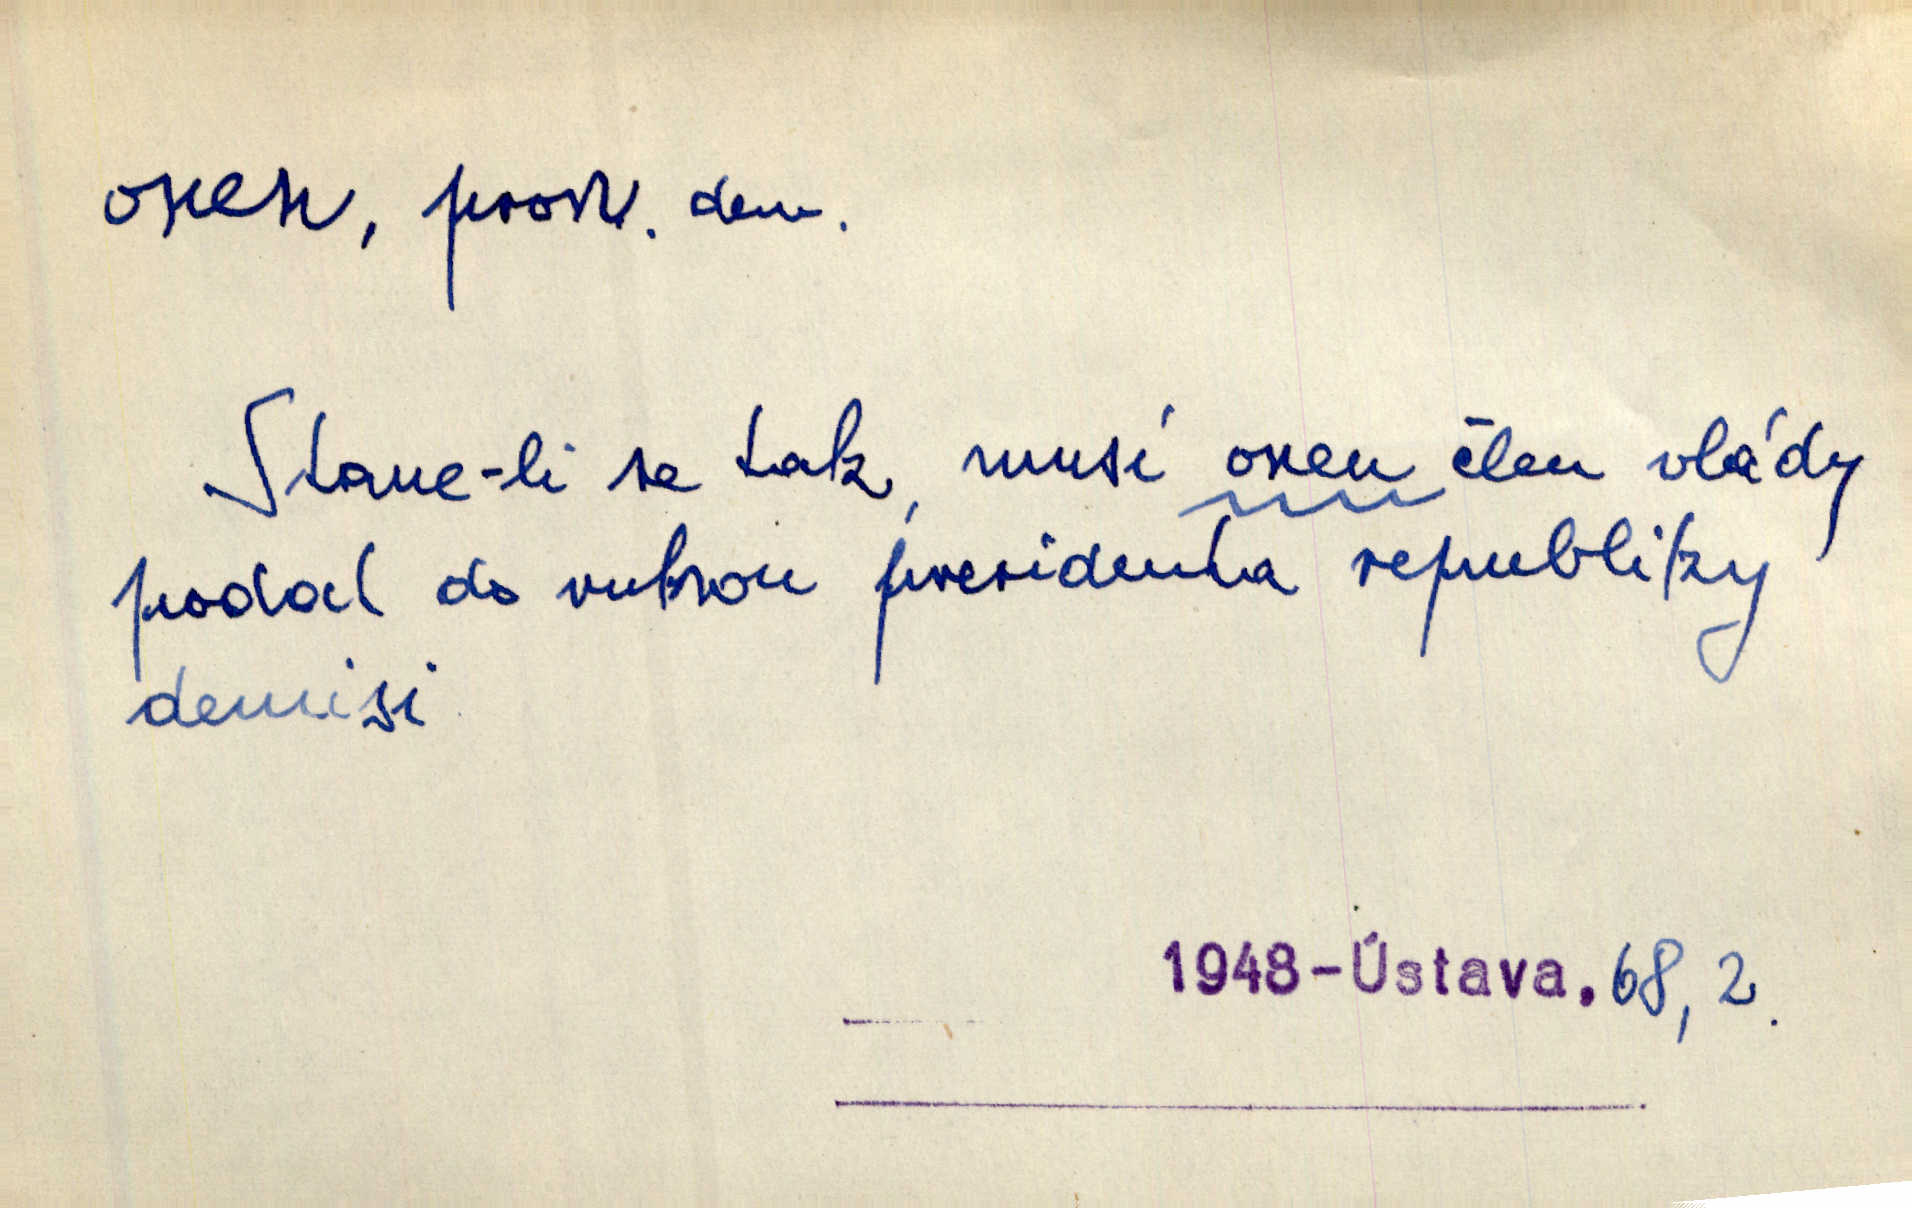 onen, pron. dem.
Stane-li se tak, musí onen člen vlády
podat do rukou presidenta republiky
demisi
1948-Ústava. 68, 2.